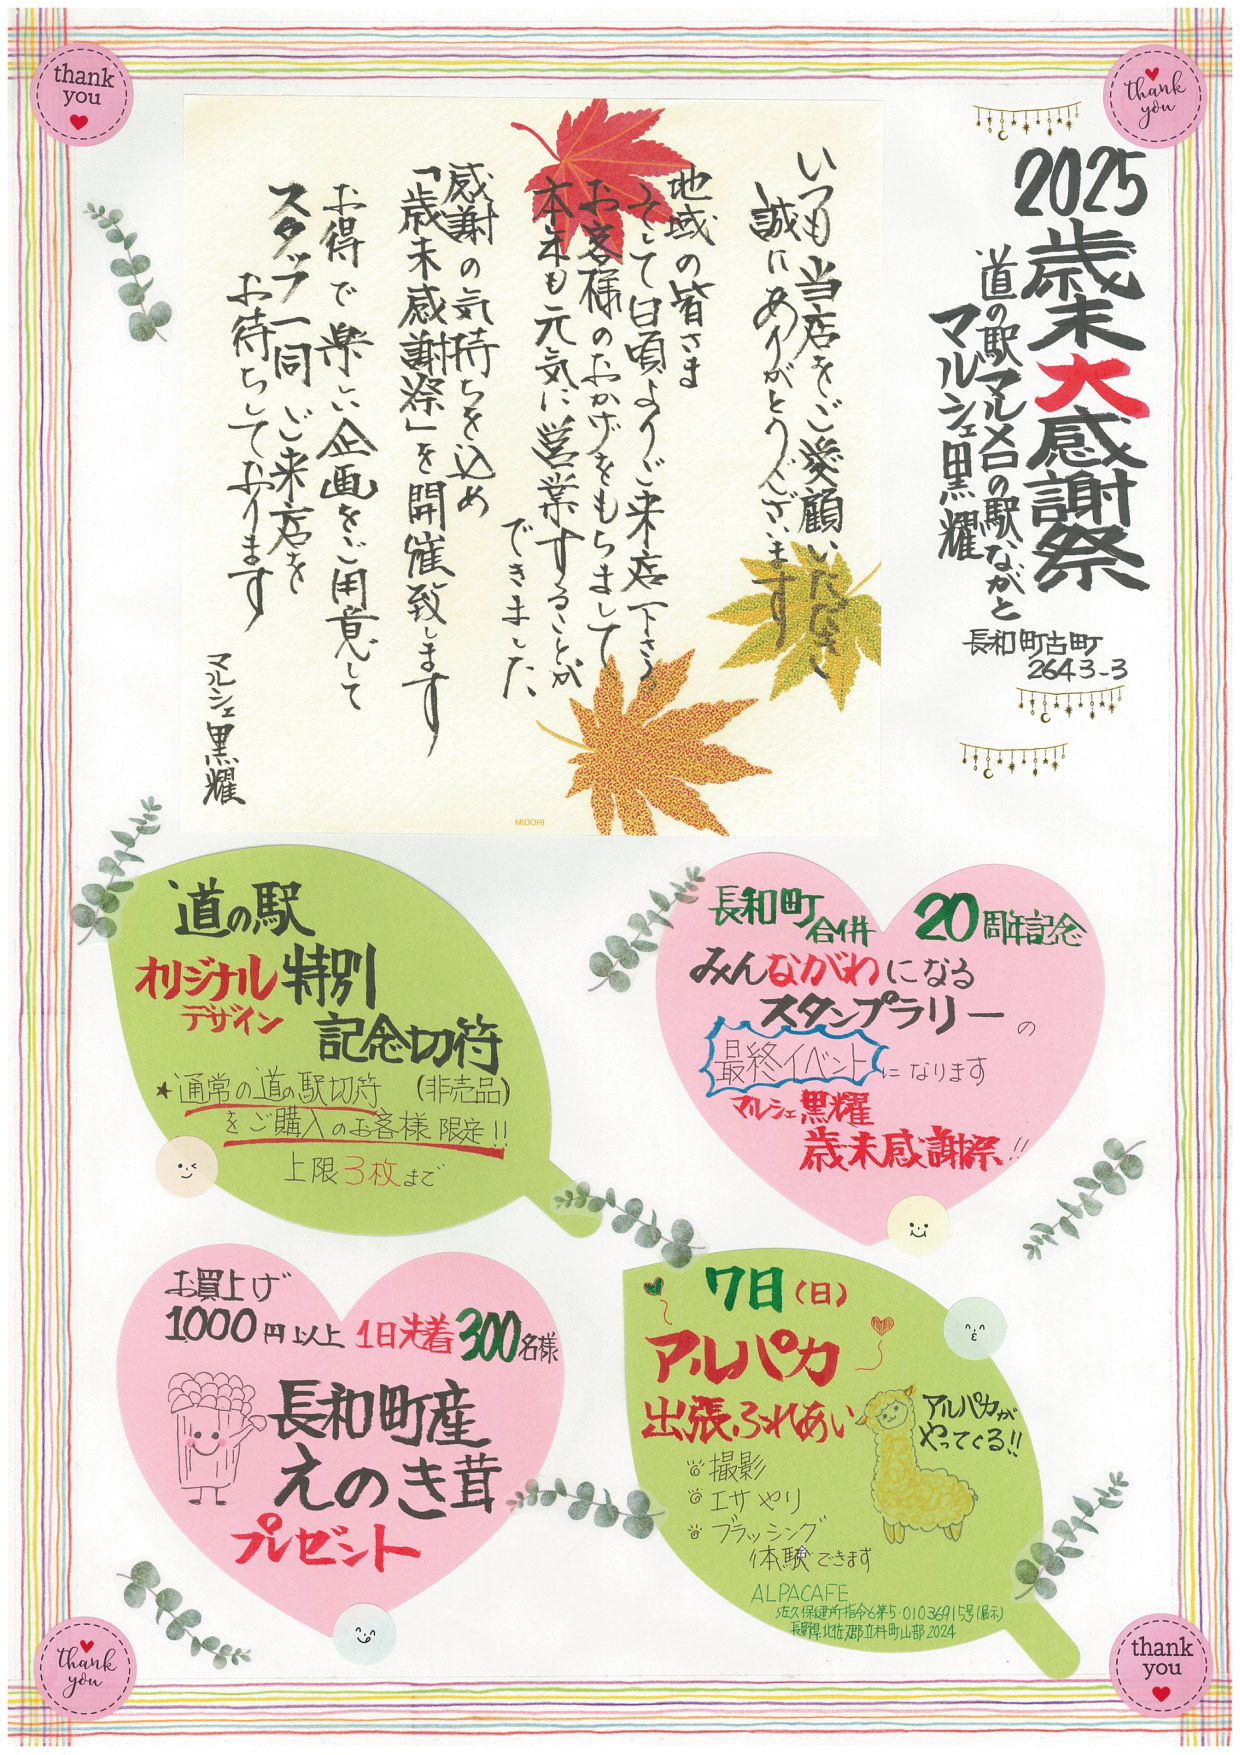 thank
you
thank
you
2025歳末大感謝祭
道の駅マルメロの駅ながと
マルシェ黒耀
長和町古町
2643-3
いつも当店をご愛顧いただきし
誠にありがとうございます
地域の皆さま
そして日頃よりご来店下さる
お客様のおかげをもちまして
本年も元気に営業することが
できました
感謝の気持ちを込め
「歳末感謝祭」を開催致します
お得で楽しい企画をご用意して
スタッフ一同ご来店を
お待ちしております
マルシェ黒耀
MIDORI
道の駅
オリジナル特別
デザイン
記念切符
★通常の道の駅切符 (非売品)
をご購入のお客様限定!!
上限3枚まで
長和町合併 20周年記念
みんながわになる
スタンプラリーの
最終イベントになります
マルシェ黒耀
歳末感謝祭!!
お買上げ
1000円以上 1日先着300名様
長和町産
えのき茸
プレゼント
7日(日)
アルパカ
出張ふれあい
アルパカが
やってくる!!
撮影
エサやり
ブラッシング
体験できます
ALPACAFE
佐久保健所指令6第5-01036915号(展示)
長野県北佐久郡立科町山部2024
thank
you
thank
you